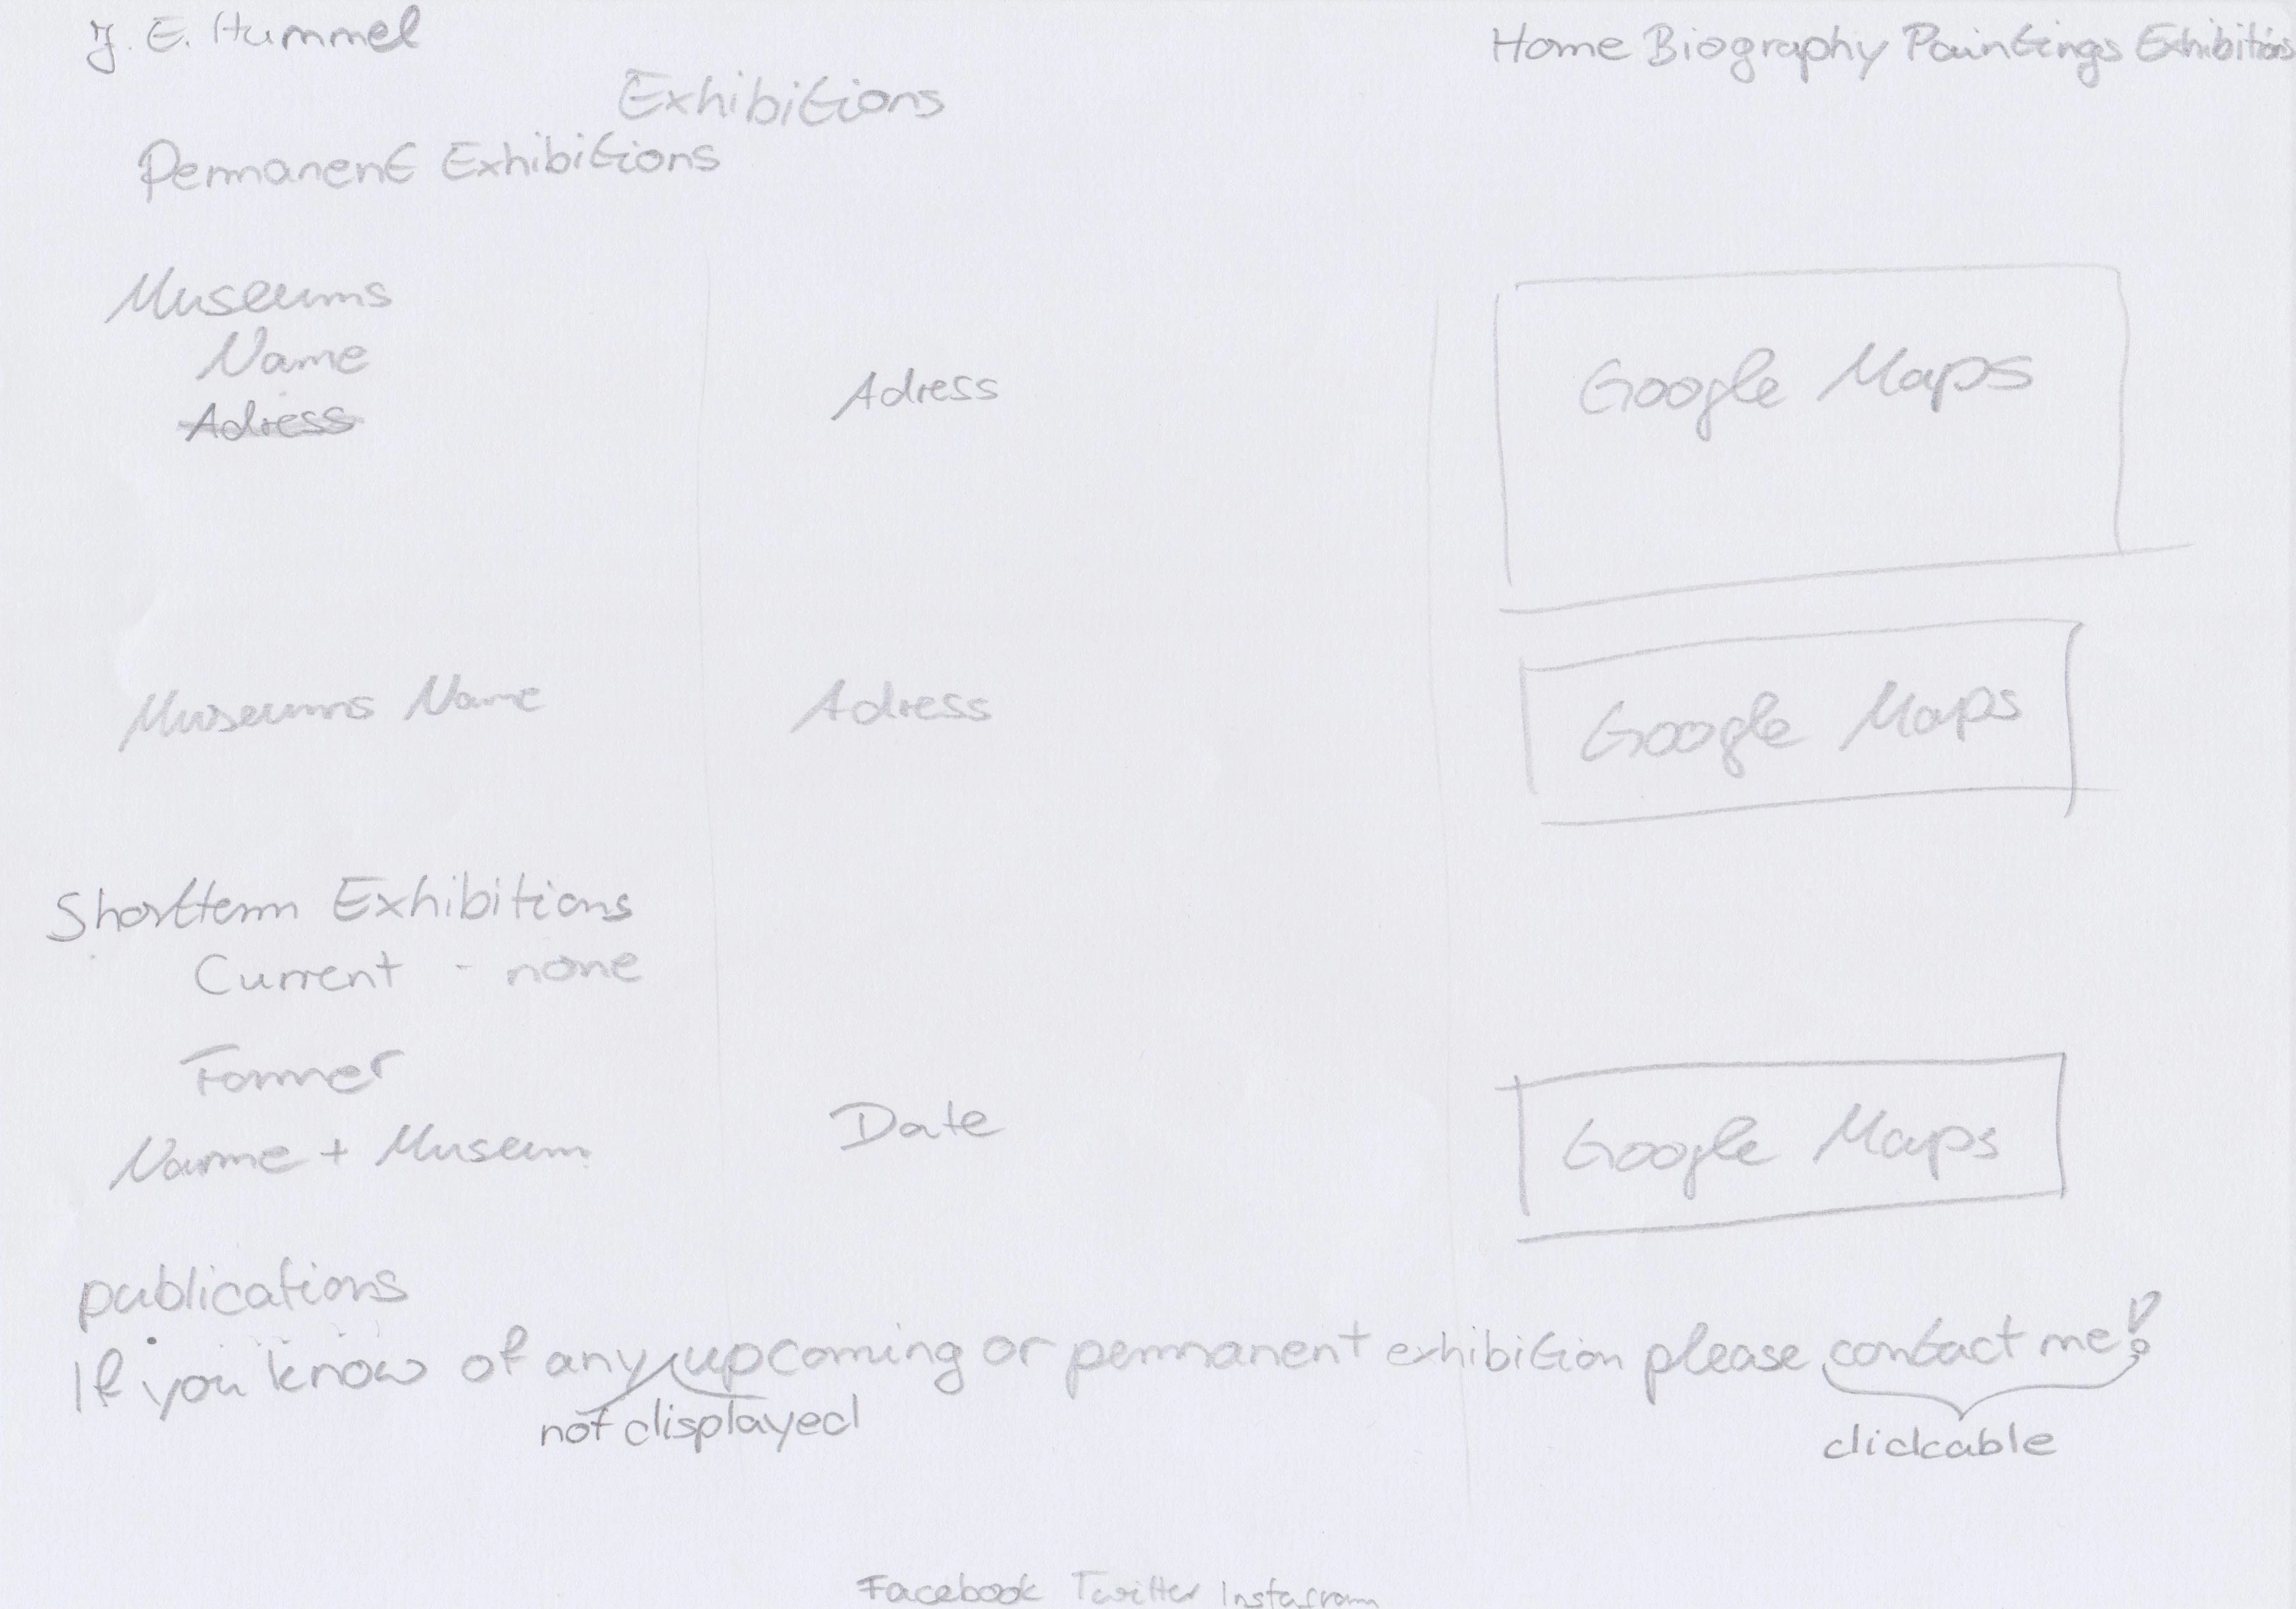 J. E. Hummel
Home Biography Paintings Exhibitions
Exhibitions
Permanent Exhibitions
Museums
Name
Adress
Adress
Google Maps
Museums Name
Adress
Google Maps
Shortterm Exhibitions
Current - none
Former
Name + Museum
Date
Google Maps
publications
If you know of any upcoming or permanent exhibition please contact me!
not displayed
clickable
Facebook Twitter Instagram